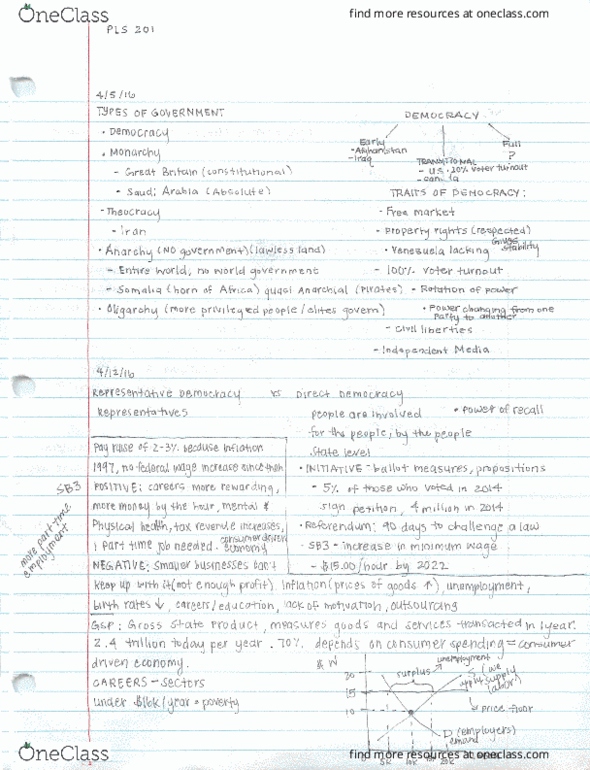 OneClass
find more resources at oneclass.com
PLS 201
4/5/16
TYPES OF GOVERNMENT
• Democracy
• Monarchy
- Great Britain (constitutional)
- Saudi Arabia (Absolute)
- Theocracy
- Iran
• Anarchy (NO government) (lawless land)
- Entire World, no world government
- Somalia (horn of Africa) quasi Anarchial (Pirates)
• Oligarchy (more privileged people/elites govern)
DEMOCRACY
Early
- Afghanistan
- Iraq
TRANSITIONAL
- US · 20% voter turnout
Full
?
TRAITS OF DEMOCRACY:
- Free market
- Property rights (respected)
gives stability
• Venezuela lacking
- 100% voter turnout
• Rotation of power
• Power changing from one
party to another
- Civil liberties
- Independent Media
4/12/16
Representative Democracy vs Direct Democracy
Representatives
people are involved
• power of recall
for the people, by the people
state level
• INITIATIVE - ballot measures, propositions
- 5% of those who voted in 2014
sign petition, 4 million in 2014
• Referendum: 90 days to challenge a law
• SB3 - increase in minimum wage
- $15.00/hour by 2022
SB3
more part-time
employment
Pay raise of 2-3% because inflation
1997, no federal wage increase since then
POSITIVE: careers more rewarding,
more money by the hour, mental &
Physical health, tax revenue increases,
1 part time job needed. consumer driven
economy
NEGATIVE: Smaller businesses can't
keep up with it (not enough profit). Inflation (prices of goods ↑), unemployment,
birth rates ↓, careers/education, lack of motivation, outsourcing
GSP: Gross State Product, measures goods and services transacted in 1 year.
2.4 trillion today per year. 70% depends on consumer spending = consumer
driven economy.
CAREERS - sectors
Under $16k/year = poverty
$ W
20
15
10
surplus
unemployment
S (we
supply
labor)
price floor
D (employers)
demand
5k 10k 15k 20k
OneClass
find more resources at oneclass.com